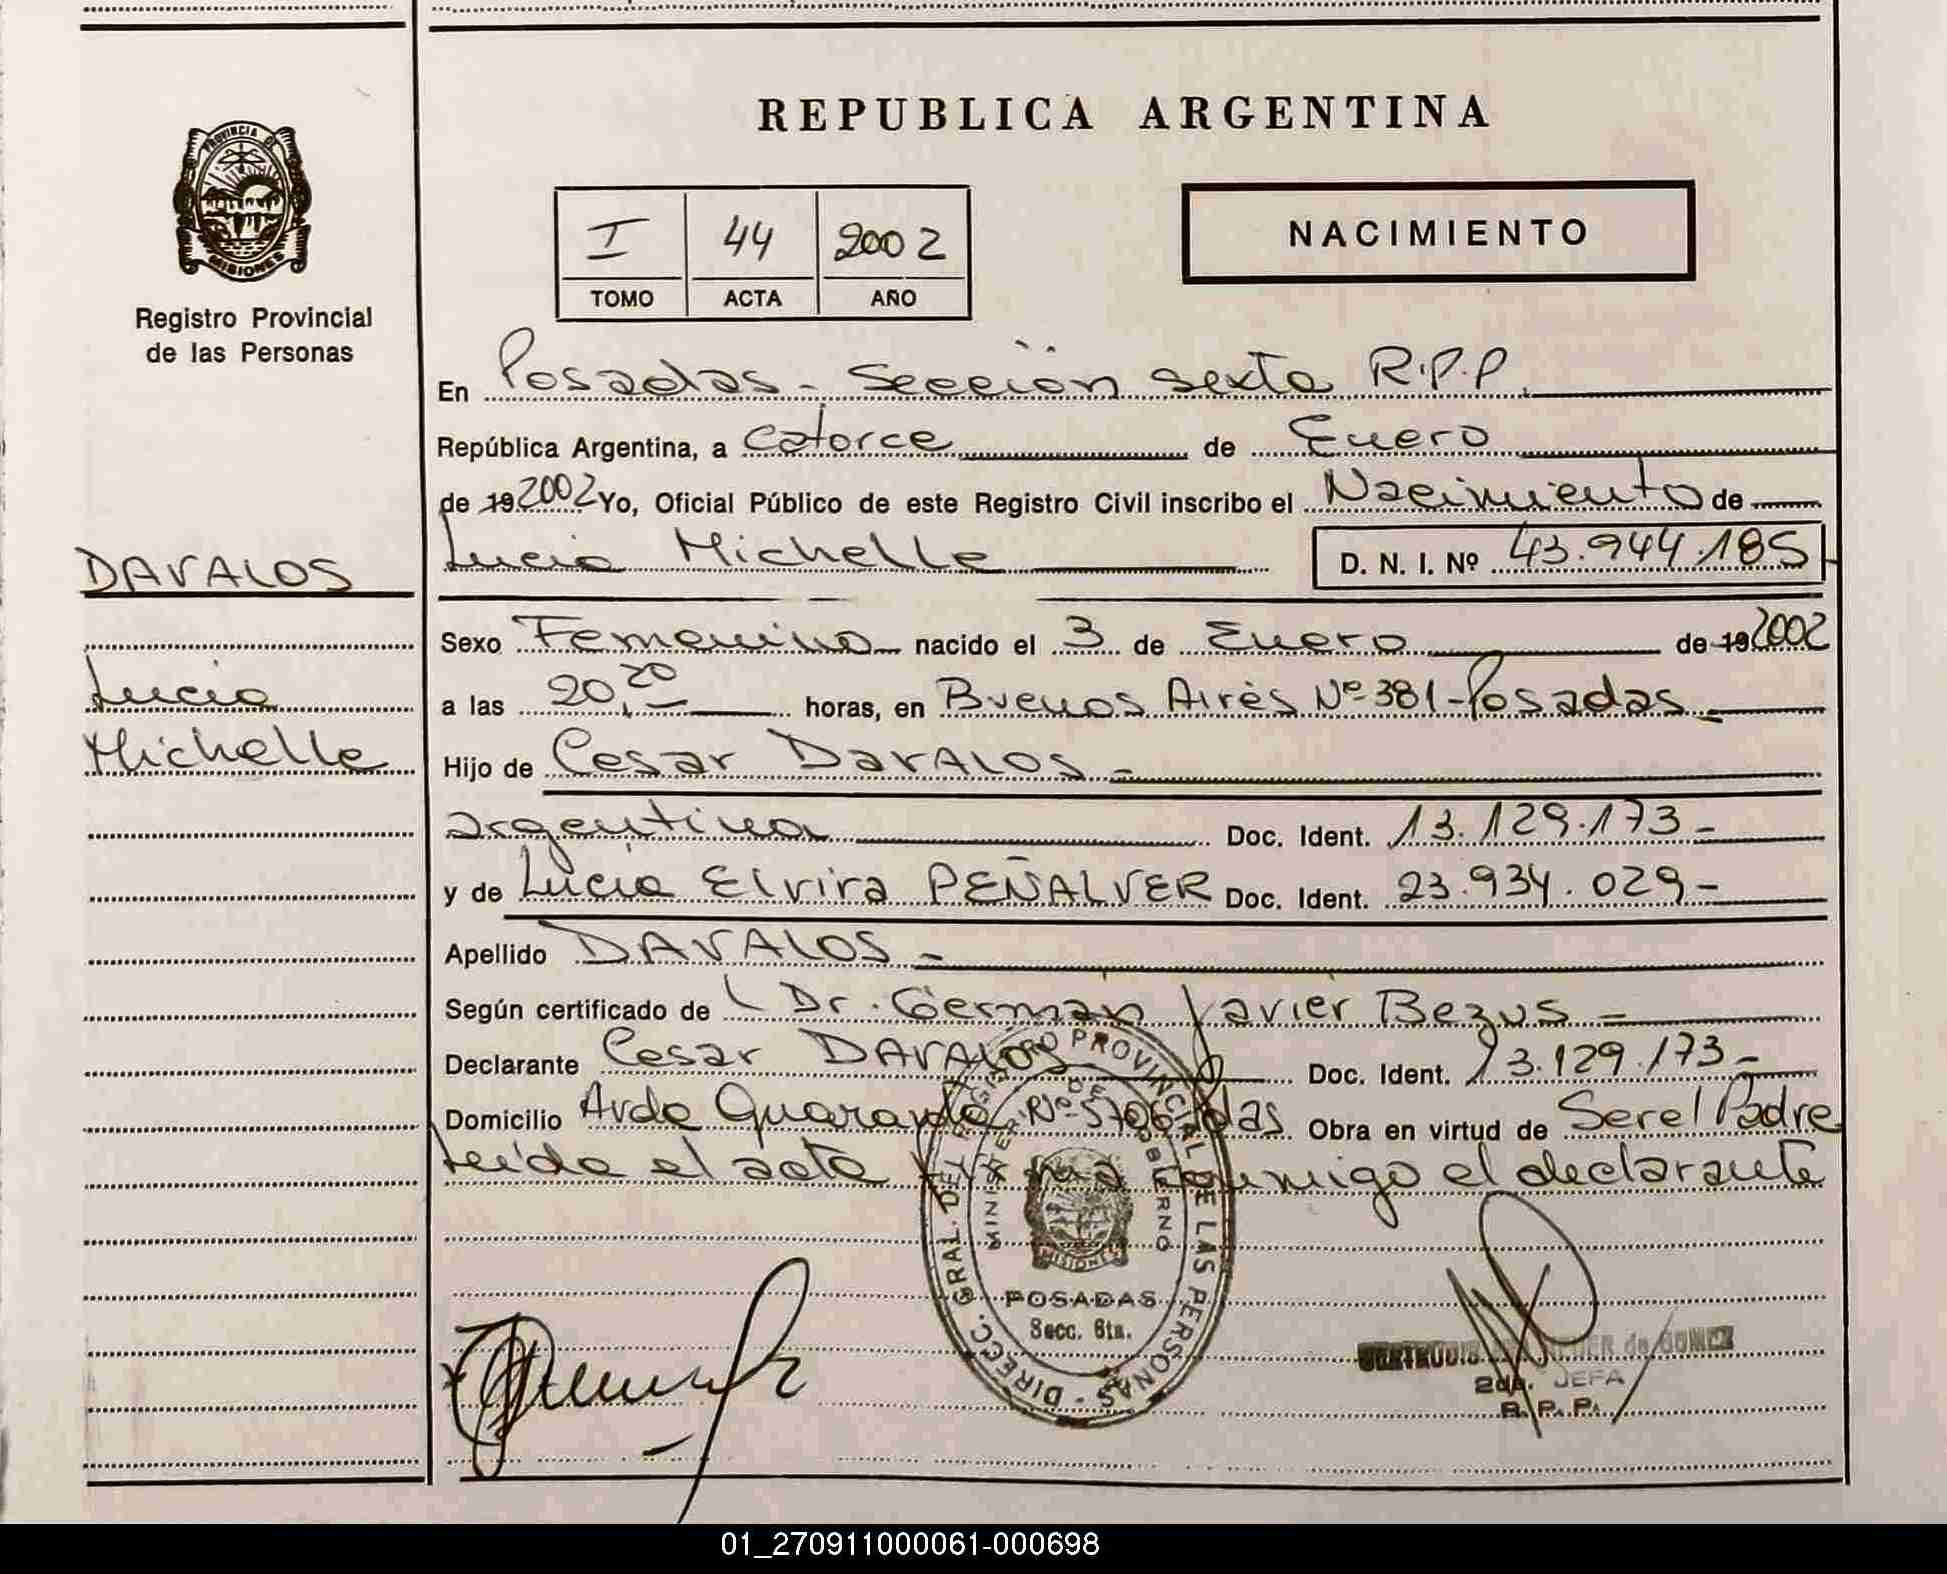 REPUBLICA ARGENTINA
PROVINCIA DE
MISIONES
Registro Provincial
de las Personas
I 44 2002
TOMO ACTA AÑO
NACIMIENTO
En Posadas - Sección sexta R.P.P.
República Argentina, a catorce de Enero
de 19 2002 Yo, Oficial Público de este Registro Civil inscribo el Nacimiento de
DAVALOS
Lucia Michelle D. N. I. Nº 43.944.185
Sexo Femenino nacido el 3 de Enero de 19 2002
Lucia
a las 20,20 horas, en Buenos Aires Nº 381 - Posadas -
Michelle
Hijo de Cesar DavALOS -
argentina Doc. Ident. 13.129.173 -
y de Lucia Elvira PEÑALVER Doc. Ident. 23.934.029 -
Apellido DAVALOS -
Según certificado de Dr. Germán Javier Bezus -
Declarante Cesar DAVALOS Doc. Ident. 13.129.173 -
Domicilio Avda Quaranta Nº 5706 Obra en virtud de Ser el Padre
Leída el acta conmigo el declarante
DIRECC. GRAL. DEL REGISTRO PROVINCIAL DE LAS PERSONAS
MINISTERIO DE GOBIERNO
MISIONES
POSADAS
Secc. 6ta.
de GOMEZ
2da. JEFA
R. P. P.
01_270911000061-000698